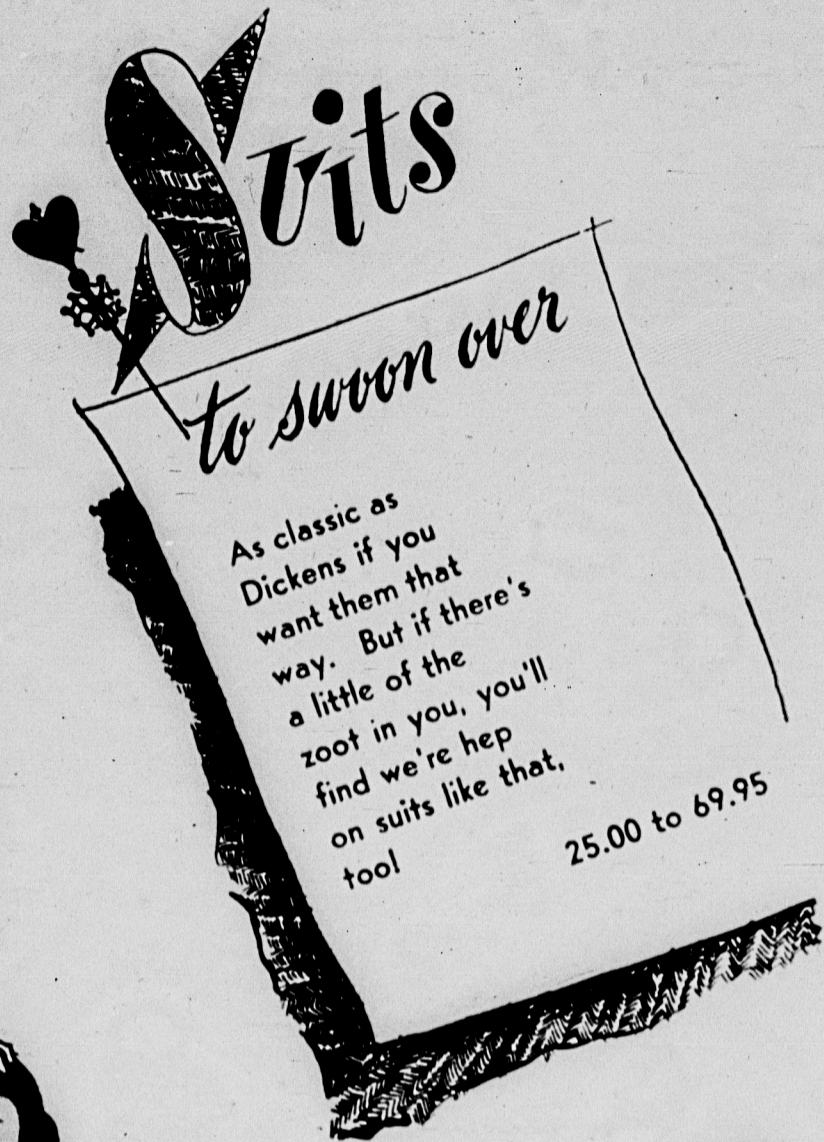 Suits
to swoon over
As classic as
Dickens if you
want them that
way. But if there's
a little of the
zoot in you, you'll
find we're hep
on suits like that,
too!
25.00 to 69.95